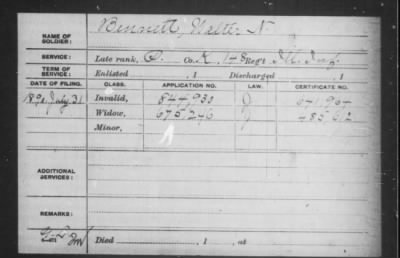 NAME OF SOLDIER: Bennett, Walter N.
SERVICE: Late rank, Co. K, 148 Regt Ill. Inf.
TERM OF SERVICE: Enlisted , 1 Discharged , 1
DATE OF FILING. CLASS. APPLICATION NO. LAW. CERTIFICATE NO.
1890 July 31 Invalid, 844,933 J
Widow, 675,246 J 485,612
Minor,
ADDITIONAL SERVICES:
REMARKS:
Died , 1 , at